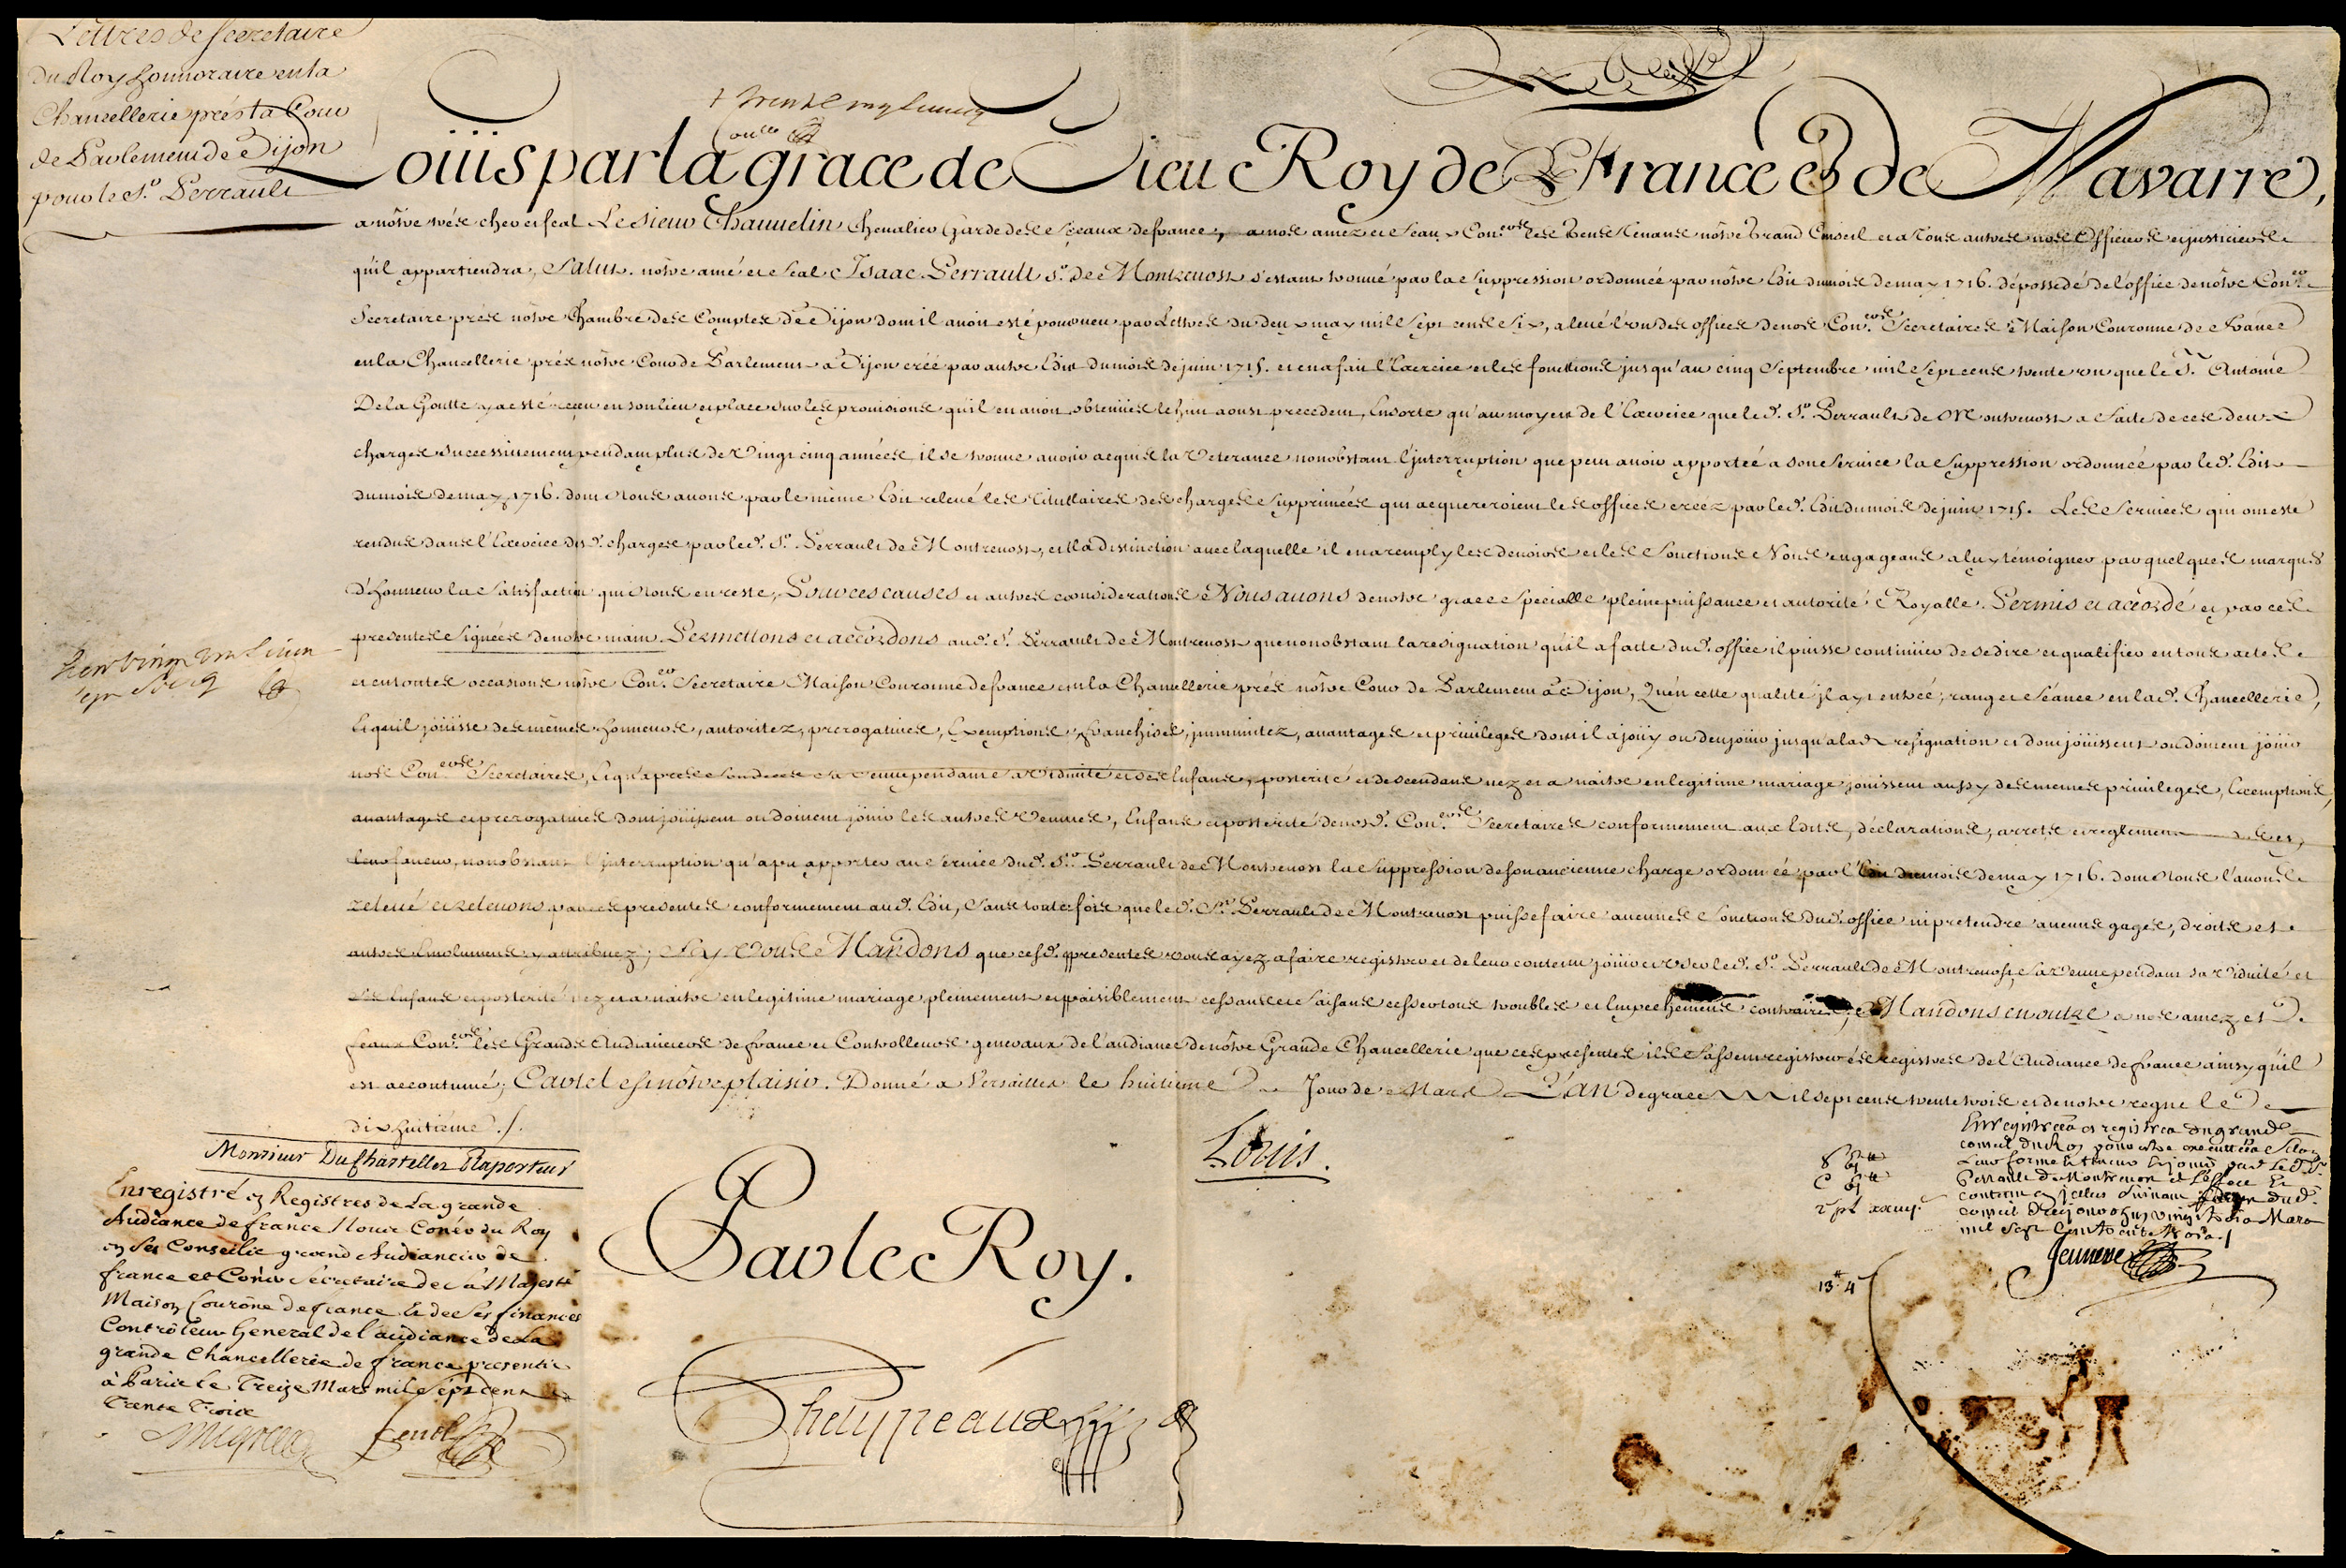 Lettres de secretaire
du Roy honnoraire en la
Chancellerie prés la Cour
de Parlement de Dijon
pour le Sr. Perrault
Loüis par la grace de Dieu Roy de France et de Navarre,
a nôtre trés cher et feal Le sieur Chauvelin Chevalier Garde des sceaux de france, a nos amez et feaux Con.ers les Gens tenans nôtre Grand Conseil et a tous autres nos Officiers et justiciers
qu'il appartiendra, Salut. nôtre amé et feal Isaac Perrault Sr. de Montrevost s'estant trouvé par la suppression ordonnée par nôtre Edit du mois de may 1716. dépossedé de l'office de nôtre Con.er
Secretaire prés nôtre Chambre des Comptes de Dijon dont il avoit esté pourveu par Lettres du deux may mil sept cens six, a levé l'un des offices de nos Con.ers Secretaires Maison Couronne de france
en la Chancellerie prés nôtre Cour de Parlement a Dijon créé par autre Edit du mois de juin 1715. et en a fait l'Exercice et les fonctions jusqu'au cinq Septembre mil sept cens trente un que le Sr. Antoine
De la Goutte y a esté receu en son lieu et place sur les provisions qu'il en avoit obtenües le huit aoust precedent, Ensorte qu'au moyen de l'Exercice que le d. Sr. Perrault de Montrevost a faite de ces deux
charges successivement pendant plus de vingt cinq années il se trouve avoir acquis la veterance nonobstant l'interruption que peut avoir apportée a son service la suppression ordonnée par le d. Edit
du mois de may 1716. dont Nous avons par le même Edit relevé les titullaires des charges supprimées qui acquereroient les offices créez par le d. Edit du mois de juin 1715. Les services qui ont esté
rendus dans l'Exercice des d. charges par le d. Sr. Perrault de Montrevost, et la distinction avec laquelle il en a remply les devoirs et les fonctions Nous engageans a luy témoigner par quelques marques
d'honneur la satisfaction qui Nous en reste, Pour ces causes et autres considerations Nous avons de notre grace specialle pleine puissance et autorité Royalle Permis et accordé et par ces
presentes signées de notre main Permettons et accordons au d. Sr. Perrault de Montrevost que nonobstant la resignation qu'il a faite du d. office il puisse continüer de se dire et qualifier en tous actes
et en toutes occasions nôtre Con.er Secretaire Maison Couronne de france en la Chancellerie prés nôtre Cour de Parlement a Dijon, Qu'en cette qualité il ayt entrée, rang et séance en la d. Chancellerie,
Et qu'il joüisse des mêmes honneurs, autoritez, prerogatives, Exemptions, franchises, immunitez, avantages et privileges dont il a joüy ou deu joüir jusqu'a la d. resignation et dont joüissent ou doivent joüir
nos Con.ers Secretaires, Et qu'aprés son deceds sa veuve pendant sa viduité et ses Enfans, posterité et descendans nez et a naitre en legitime mariage joüissent aussy des mêmes privileges, Exemptions,
avantages et prerogatives dont joüissent ou doivent joüir les autres veuves, Enfans et posterité de nos d. Con.ers Secretaires conformement aux Edits, déclarations, arrets et reglemens
leur faveur, nonobstant l'interruption qu'a pu apporter au service du d. Sr. Perrault de Montrevost la suppression de son ancienne charge ordonnée par l'Edit du mois de may 1716. dont Nous l'avons
relevé et relevons par ces presentes conformement au d. Edit, sans toutefois que le d. Sr. Perrault de Montrevost puisse faire aucunes fonctions du d. office ni pretendre aucuns gages, droits et
autres Emolumens y attribuez; Sy vous Mandons que ces d. presentes vous ayez a faire registrer et de leur contenu joüir et user le d. Sr. Perrault de Montrevost, sa veuve pendant sa viduité et
ses Enfans et posterité nez et a naitre en legitime mariage pleinement et paisiblement cessans et faisans cesser tous troubles et Empechemens contraires; Mandons en outre a nos amez et
feaux Con.ers les Grands Audianciers de france et Controlleurs generaux de l'audiance de nôtre Grande Chancellerie que ces presentes ils fassent registrer és registres de l'Audiance de france ainsy qu'il
est accoutumé; Car tel est nôtre plaisir. Donné a Versailles le huitieme Jour de Mars L'an de grace mil sept cens trente trois et de notre regne le
dix huitiéme ./.
Louis.
Par le Roy.
Phelypeaux
Monsieur Du Chastellet Raporteur
Enregistré ez Registres de La grande
Audiance de france Nous Con.er du Roy
en Ses Conseils grand Audiancier de
france et Con.er Sécretaire de sa Majesté
Maison Courône de france Et de Ses finances
Contrôleur General de l'audiance de La
grande Chancellerie de france presentte
à Paris Le Treize Mars mil Sept cent
Trente Trois
Enregistrées es registres du grand
conseil du Roy pour estre executtées selon
Leur forme Et teneur Et jouir par Led. Sr.
Perrault de Montrevost de L'effect Et
contenu en icelles suivant L'arrest dud.
conseil de ce jourd'huy vingt trois Mars
mil sept Cent trente trois ./.
13 4